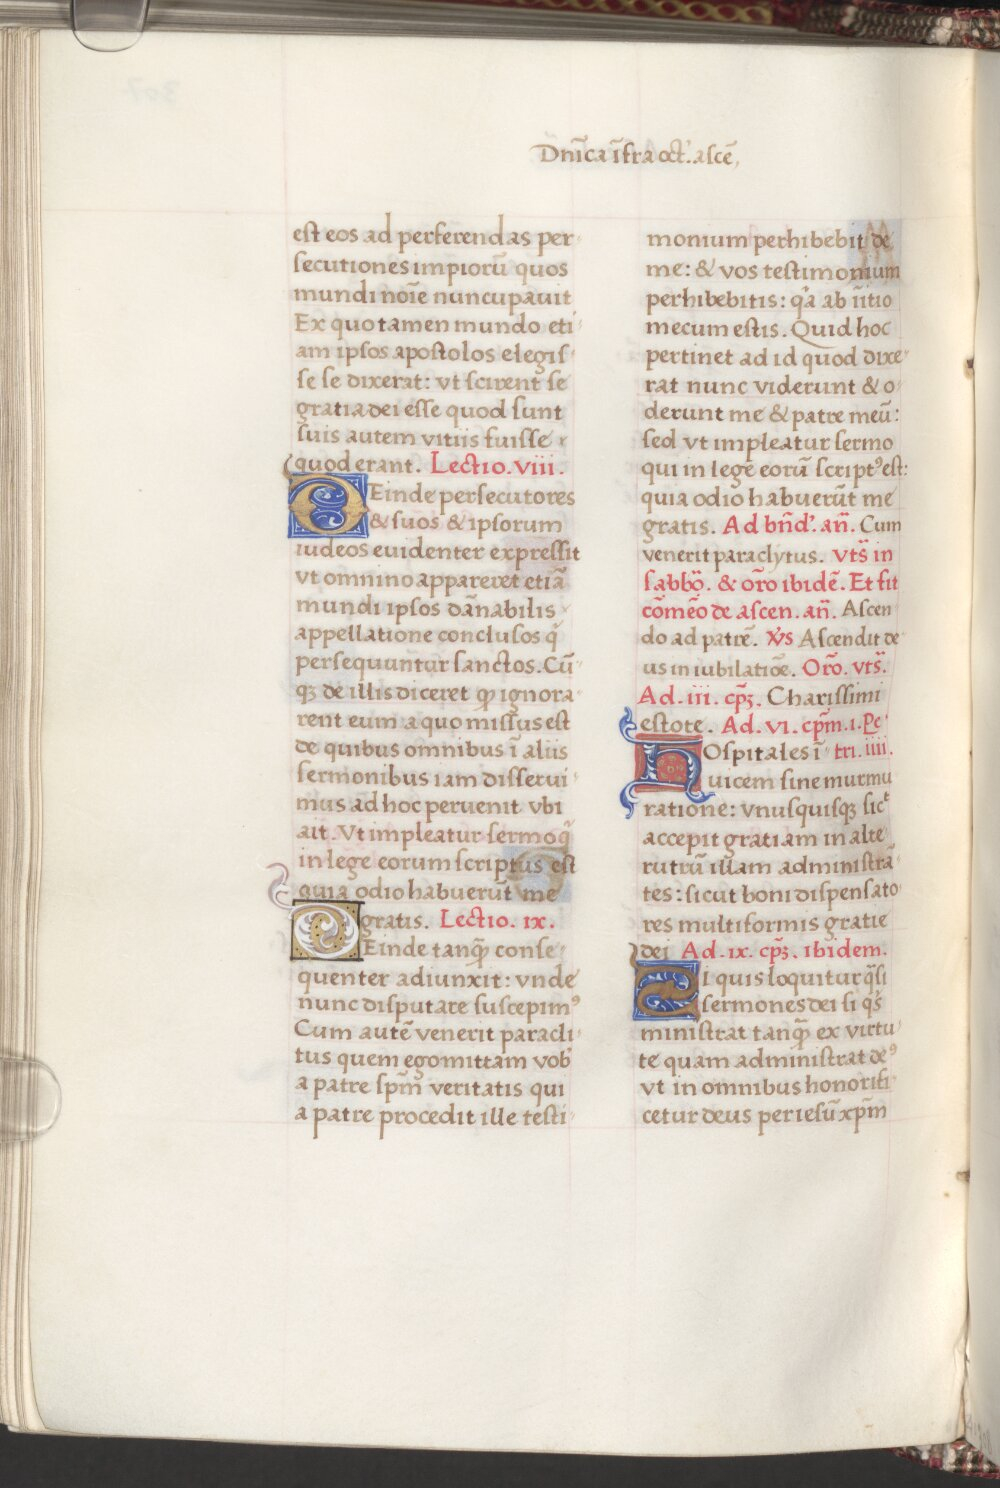 Dnĩca ĩfra oct̃. ascẽ,
est eos ad perferendas per-
secutiones impiorũ quos
mundi noĩe nuncupauit
Ex quo tamen mundo eti-
am ipsos apostolos elegis-
se se dixerat: vt scirent se
gratia dei esse quod sunt
suis autem vitiis fuisse
quod erant. Lectio. viii.
DEinde persecutores
& suos & ipsorum
iudeos euidenter expressit
vt omnino appareret etiã
mundi ipsos dãnabilis
appellatione conclusos q̃
persequuntur sanctos. Cũ-
qȝ de illis diceret ꝙ ignora-
rent eum a quo missus est
de quibus omnibus ĩ aliis
sermonibus iam disserui-
mus ad hoc peruenit vbi
ait. Vt impleatur sermo q̃
in lege eorum scriptus est
quia odio habuerũt me
gratis. Lectio. ix.
DEinde tanq̃ conse-
quenter adiunxit: vnde
nunc disputare suscepimꝰ
Cum autẽ venerit paracli-
tus quem ego mittam vob̾
a patre spm̃ veritatis qui
a patre procedit ille testi-
monium perhibebit de
me: & vos testimonium
perhibebitis: q̃a ab iĩtio
mecum estis. Quid hoc
pertinet ad id quod dixe-
rat nunc viderunt & o-
derunt me & patrẽ meũ:
sed vt impleatur sermo
qui in lege eorũ scriptꝰ est:
quia odio habuerũt me
gratis. Ad bñd̾. añ. Cum
venerit paraclytus. vts̃ in
sabbõ. & orõ ibidẽ. Et fit
cõmeõ de ascen. añ. Ascen-
do ad patrẽ. v̾s Ascendit de-
us in iubilatiõe. Orõ. vts̃.
Ad. iii. cpȝ̃. Charissimi
estote. Ad. vi. cpm̃. i. Pe-
HOspitales ĩ- tri. iiii.
uicem sine murmu-
ratione: vnusquisqȝ sicᵗ
accepit gratiam in alte-
rutrũ illam administrã-
tes: sicut boni dispensato-
res multiformis gratie
dei Ad. ix. cpȝ̃. ibidem.
SI quis loquitur q̃si
sermones dei si q̃s
ministrat tanq̃ ex virtu-
te quam administrat deꝰ
vt in omnibus honorifi-
cetur deus per iesũ xpm̃